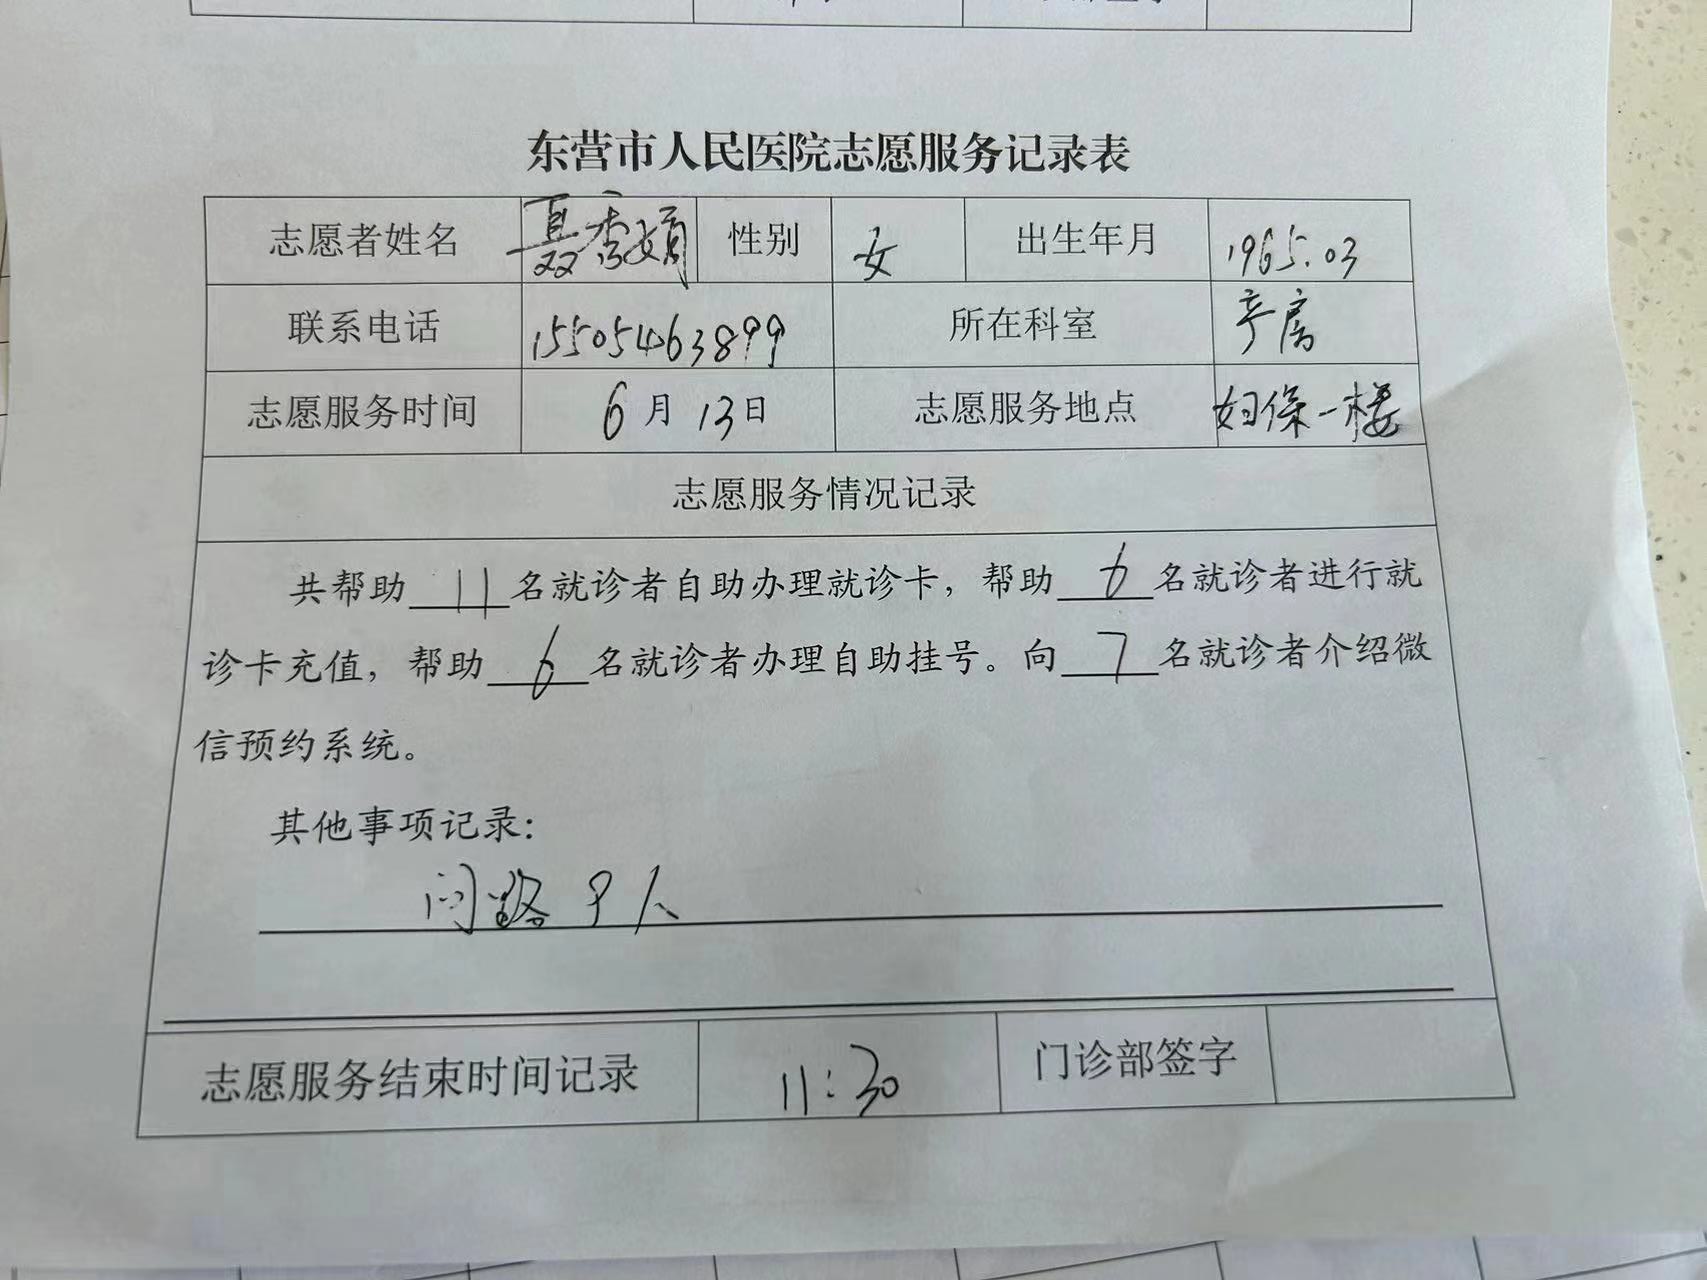 东营市人民医院志愿服务记录表
志愿者姓名 聂秀娟 性别 女 出生年月 1965.03
联系电话 15505463899 所在科室 产房
志愿服务时间 6月13日 志愿服务地点 妇保一楼
志愿服务情况记录
共帮助 11 名就诊者自助办理就诊卡，帮助 6 名就诊者进行就
诊卡充值，帮助 6 名就诊者办理自助挂号。向 7 名就诊者介绍微
信预约系统。
其他事项记录：
问路 9人
志愿服务结束时间记录 11:30 门诊部签字